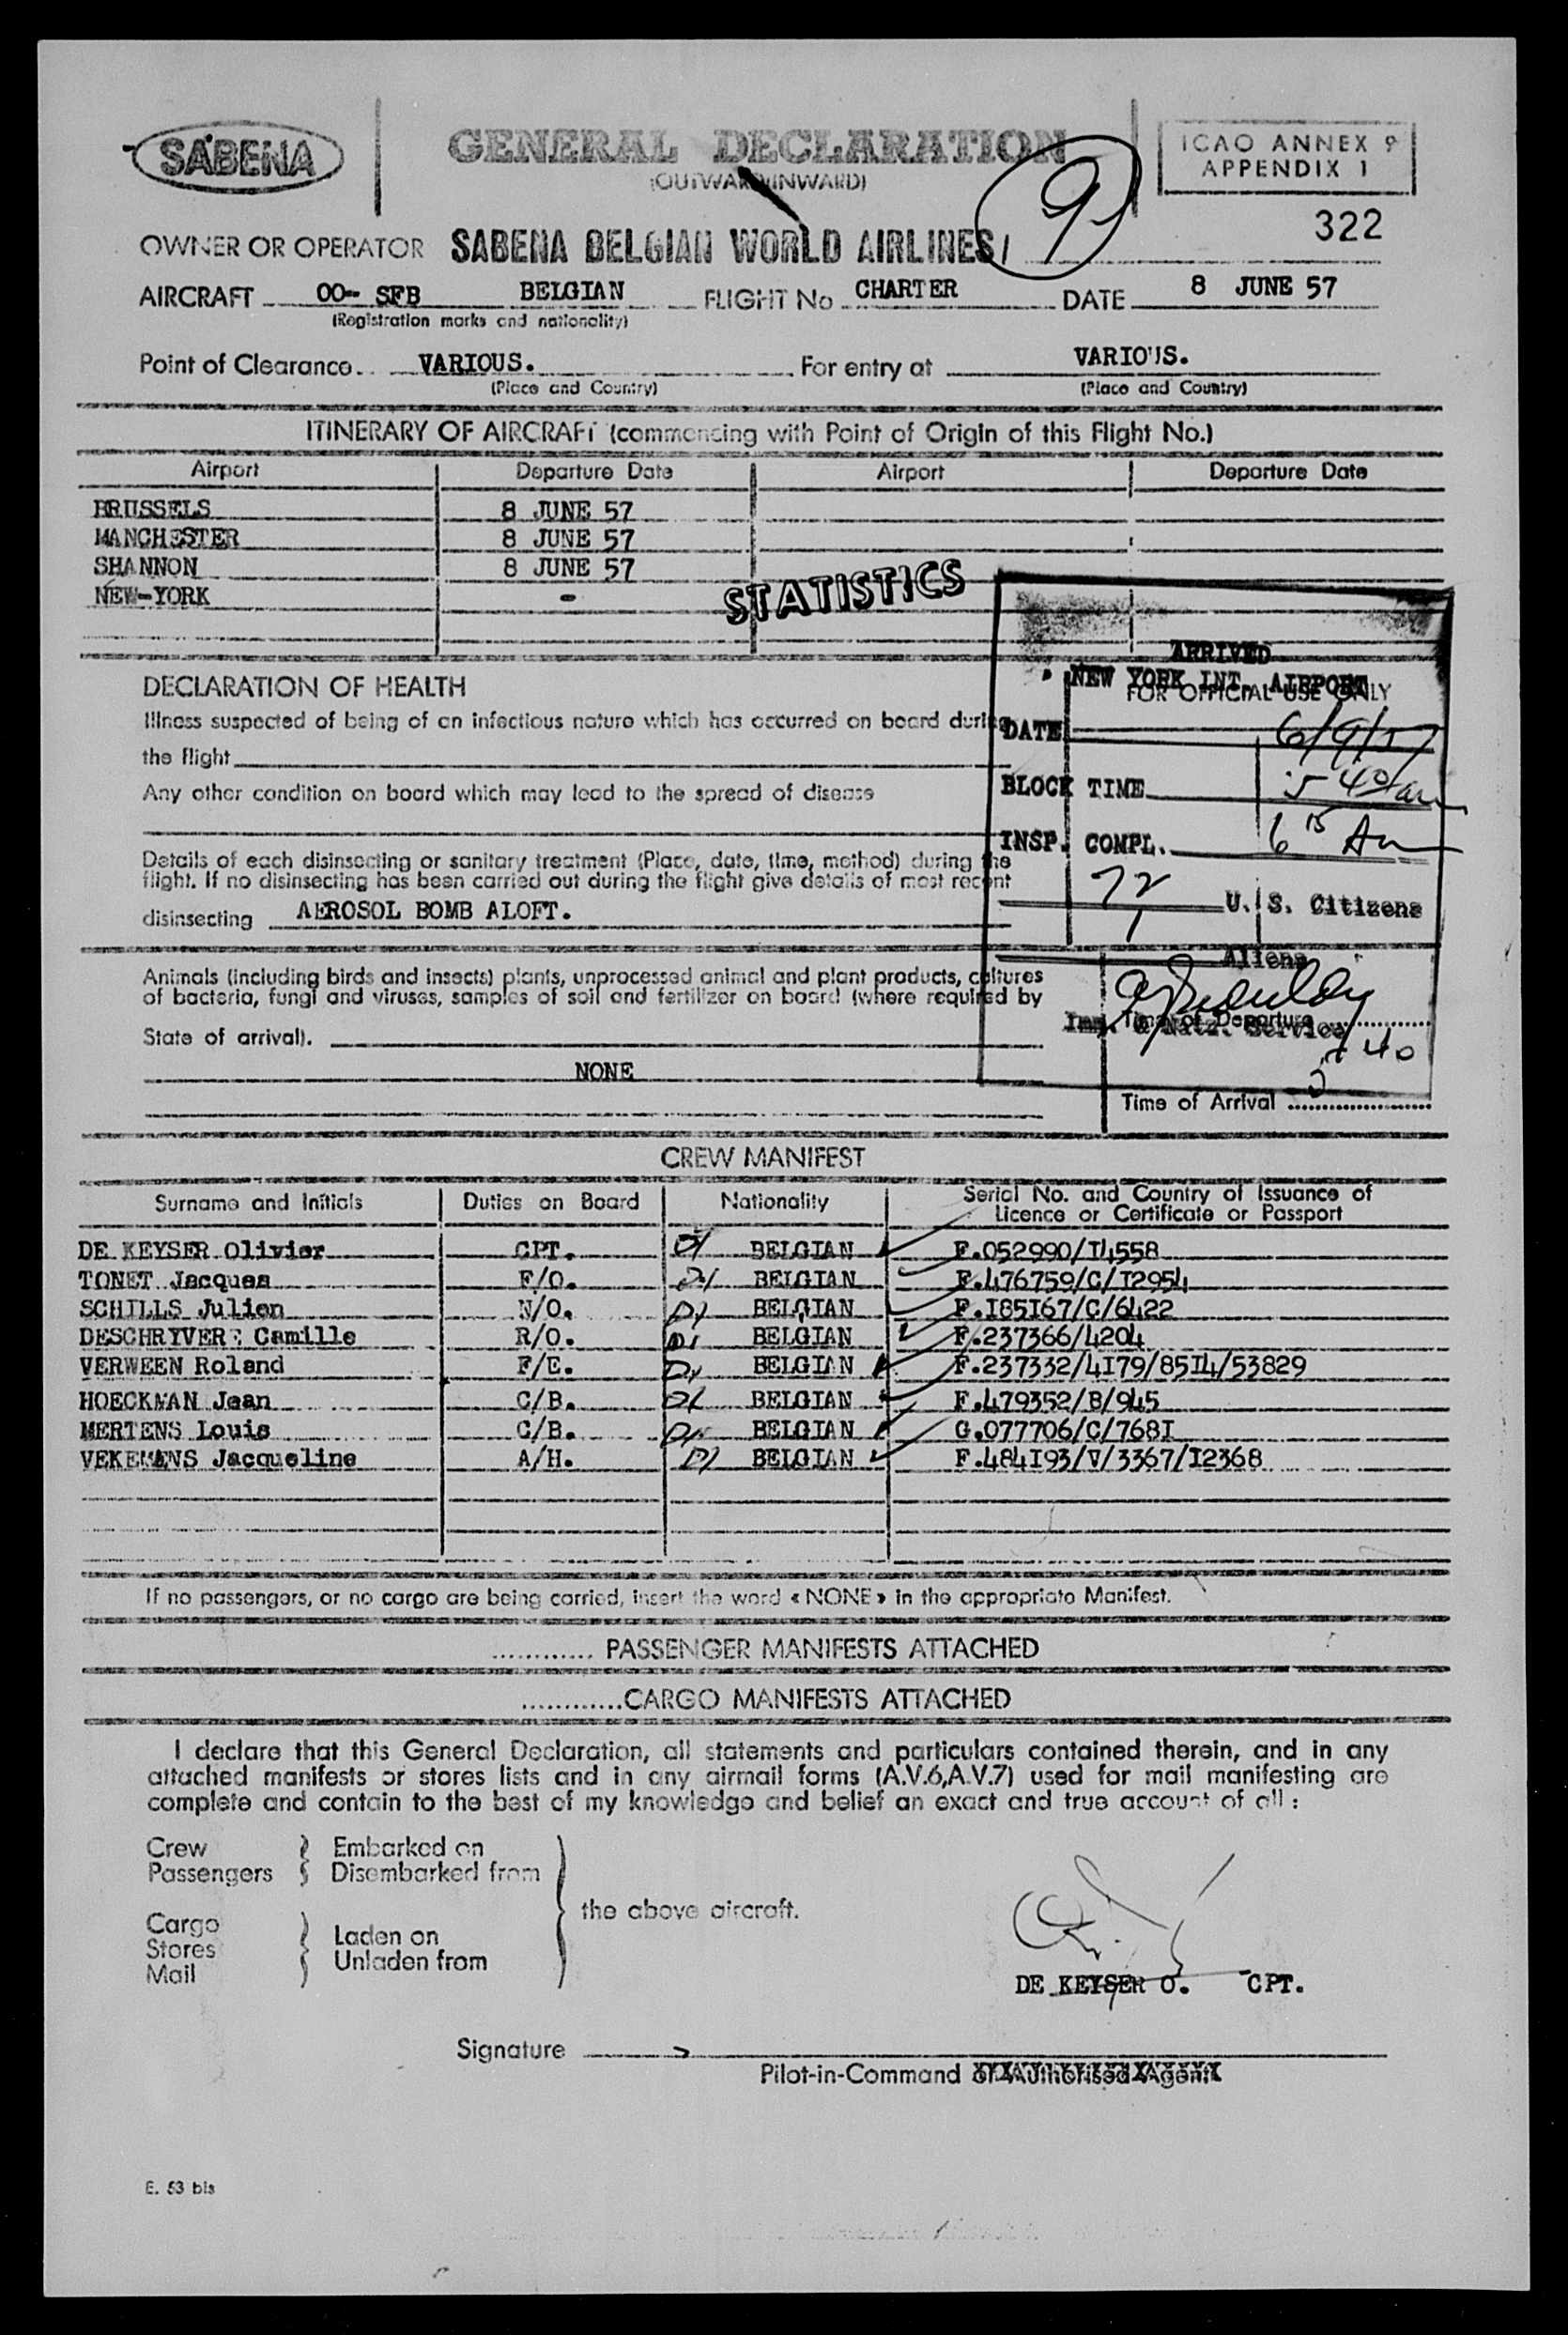 SABENA
GENERAL DECLARATION
(OUTWARD/INWARD)
ICAO ANNEX 9
APPENDIX 1
9
322
OWNER OR OPERATOR SABENA BELGIAN WORLD AIRLINES
AIRCRAFT OO- SFB BELGIAN FLIGHT No CHARTER DATE 8 JUNE 57
(Registration marks and nationality)
Point of Clearance VARIOUS. For entry at VARIOUS.
(Place and Country) (Place and Country)
ITINERARY OF AIRCRAFT (commencing with Point of Origin of this Flight No.)
Airport Departure Date Airport Departure Date
BRUSSELS 8 JUNE 57
MANCHESTER 8 JUNE 57
SHANNON 8 JUNE 57
NEW-YORK -
STATISTICS
ARRIVED
NEW YORK INT. AIRPORT
FOR OFFICIAL USE ONLY
DATE 6/9/57
BLOCK TIME 5 40 am
INSP. COMPL. 6 15 Am
72 U. S. Citizens
1 Aliens
Imm. & Natz. Service
Time of Departure
5 40
Time of Arrival
DECLARATION OF HEALTH
Illness suspected of being of an infectious nature which has occurred on board during
the flight
Any other condition on board which may lead to the spread of disease
Details of each disinsecting or sanitary treatment (Place, date, time, method) during the
flight. If no disinsecting has been carried out during the flight give details of most recent
disinsecting AEROSOL BOMB ALOFT.
Animals (including birds and insects) plants, unprocessed animal and plant products, cultures
of bacteria, fungi and viruses, samples of soil and fertilizer on board (where required by
State of arrival).
NONE
CREW MANIFEST
Surname and Initials Duties on Board Nationality Serial No. and Country of Issuance of
Licence or Certificate or Passport
DE KEYSER Olivier CPT. BELGIAN F.052990/I4558
TONET Jacques F/O. BELGIAN F.476759/C/I2954
SCHILLS Julien N/O. BELGIAN F.I85I67/C/6422
DESCHRYVER Camille R/O. BELGIAN F.237366/4204
VERWEEN Roland F/E. BELGIAN F.237332/4I79/85I4/53829
HOECKMAN Jean C/B. BELGIAN F.479352/B/945
MERTENS Louis C/B. BELGIAN G.077706/C/768I
VEKEMANS Jacqueline A/H. BELGIAN F.484I93/V/3367/I2368
If no passengers, or no cargo are being carried, insert the word « NONE » in the appropriate Manifest.
............ PASSENGER MANIFESTS ATTACHED
............CARGO MANIFESTS ATTACHED
I declare that this General Declaration, all statements and particulars contained therein, and in any
attached manifests or stores lists and in any airmail forms (A.V.6,A.V.7) used for mail manifesting are
complete and contain to the best of my knowledge and belief an exact and true account of all :
Crew Embarked on
Passengers Disembarked from
the above aircraft.
Cargo
Stores Laden on
Mail Unladen from
DE KEYSER O. CPT.
Signature
Pilot-in-Command or Authorised Agent
E. 53 bis